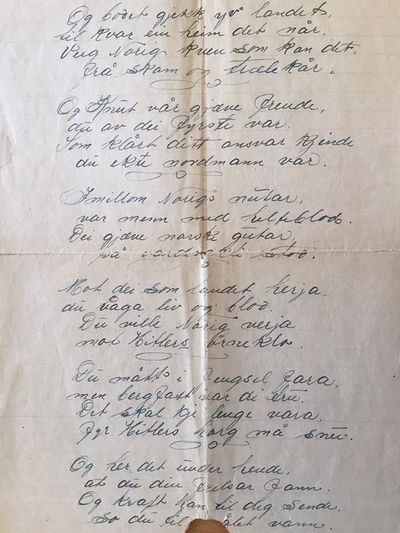 Og bodet gjekk yvi landet,
til kvar ein heim det når.
Verg Norig kvar som kan det,
frå skam og trælekår.
Og Knut vår gjæve frende,
du av dei fyrste var.
Som klårt ditt ansvar kjende
du ekte nordmann var.
Imillom Norigs nutar,
var menn med helteblod.
Dei gjæve norske gutar,
på stod.
Mot dei som landet herja,
du våga liv og blod.
Du ville Norig verja
mot Hitlers ørneklo.
Du måtte i fengsel fara,
men bergfast var di tru.
Det skal kje lenge vara,
fyr Hitlers horg må snu.
Og her det under hende,
at du din frelsar fann.
Og kraft han til deg sende,
So du til målet vann.